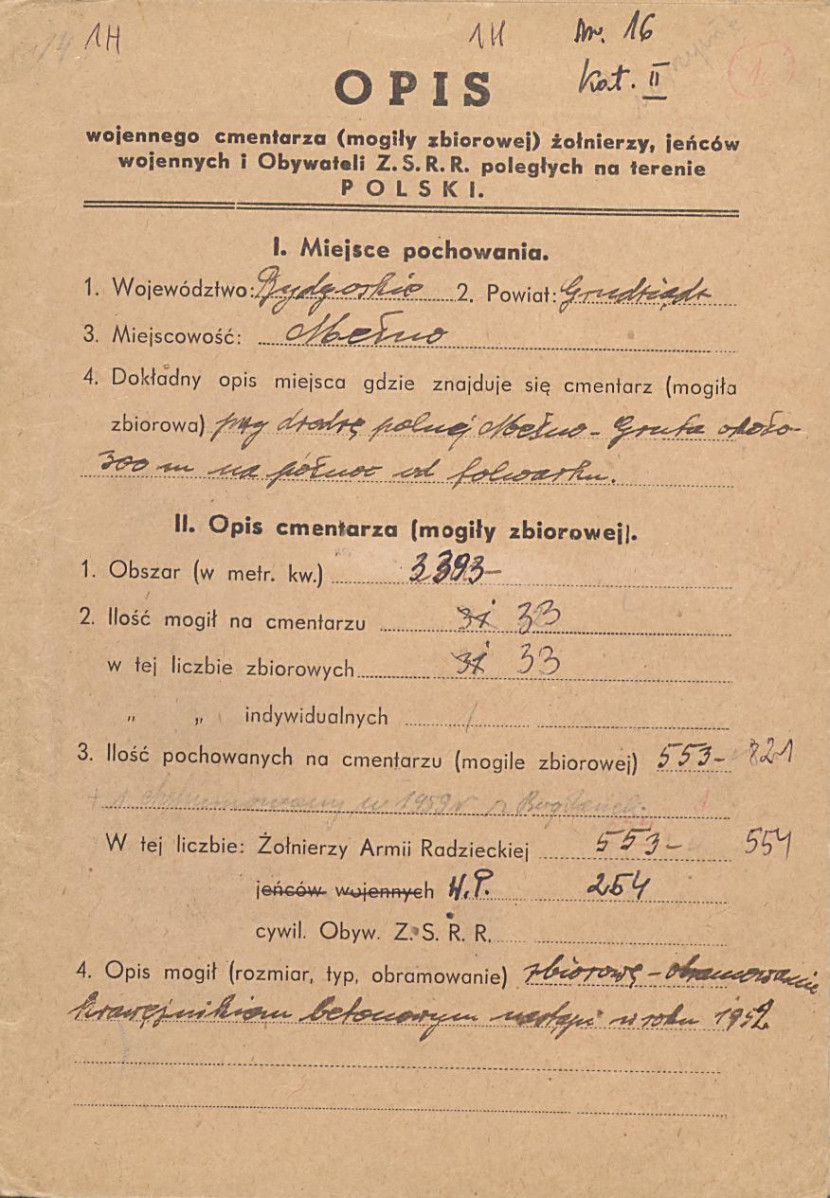 1H 1H Nr. 16
Kat. II
OPIS
wojennego cmentarza (mogiły zbiorowej) żołnierzy, jeńców
wojennych i Obywateli Z.S.R.R. poległych na terenie
POLSKI.
I. Miejsce pochowania.
1. Województwo: Bydgoskie 2. Powiat: Grudziądz
3. Miejscowość: Mełno
4. Dokładny opis miejsca gdzie znajduje się cmentarz (mogiła
zbiorowa) przy drodze polnej Mełno - Gruta około
300 m na północ od folwarku.
II. Opis cmentarza (mogiły zbiorowej).
1. Obszar (w metr. kw.) 3393-
2. Ilość mogił na cmentarzu 31 33
w tej liczbie zbiorowych 31 33
" " indywidualnych /
3. Ilość pochowanych na cmentarzu (mogile zbiorowej) 553- 821
+ 1 ekshumowany w 1959 r z
W tej liczbie: Żołnierzy Armii Radzieckiej 553- 554
jeńców wojennych W.P. 254
cywil. Obyw. Z.S.R.R.
4. Opis mogił (rozmiar, typ, obramowanie) zbiorowe - obramowanie
krawężnikiem betonowym nastąpi w roku 1952